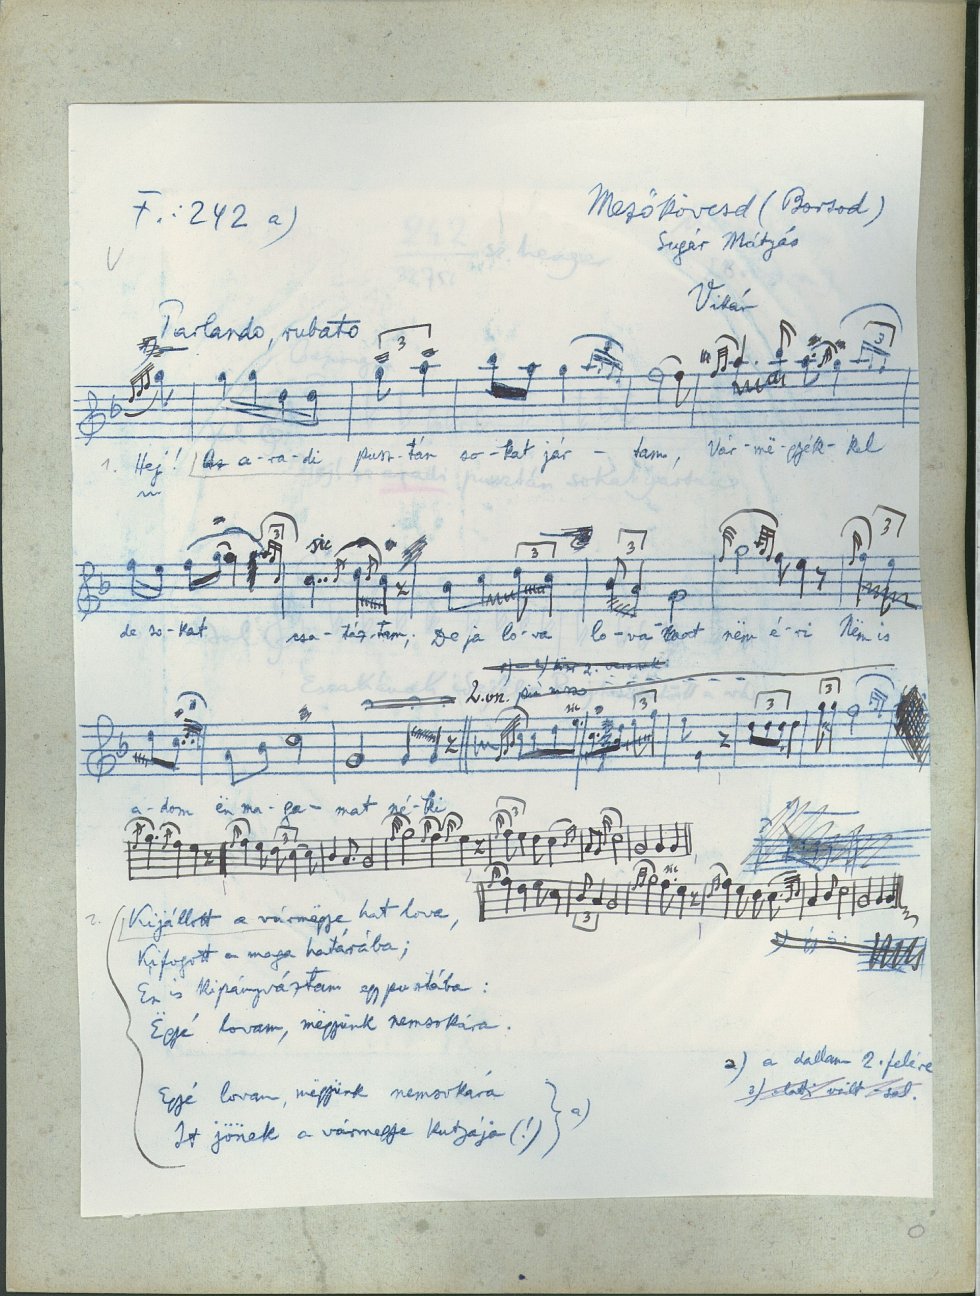 F.: 242 a)
Mezőkövesd (Borsod)
Sugár Mátyás
Vikár
Parlando, rubato
3
3
1. Hej! Az a-ra-di pusz-tán so-kat jár - tam, Vár-më-gyék-kel
3
sic
3
3
3
de so-kat csa-táz-tam; De ja lo-va lo-vá-kot nëm é-ri Nëm is
2. vsz.
3
3
a-dom ën ma-ga-mat né-ki
3
3
sic
3
2. Kijállott a vármëgye hat lova,
Kifogott a maga határába;
Én is kipányváztam egy pusztába:
Ëgyé lovam, mëgyünk nemsokára.
Egyé lovam, mëgyünk nemsokára
Itt jönek a vármegye kutyája (!) } a)
a) a dallam 2. felére